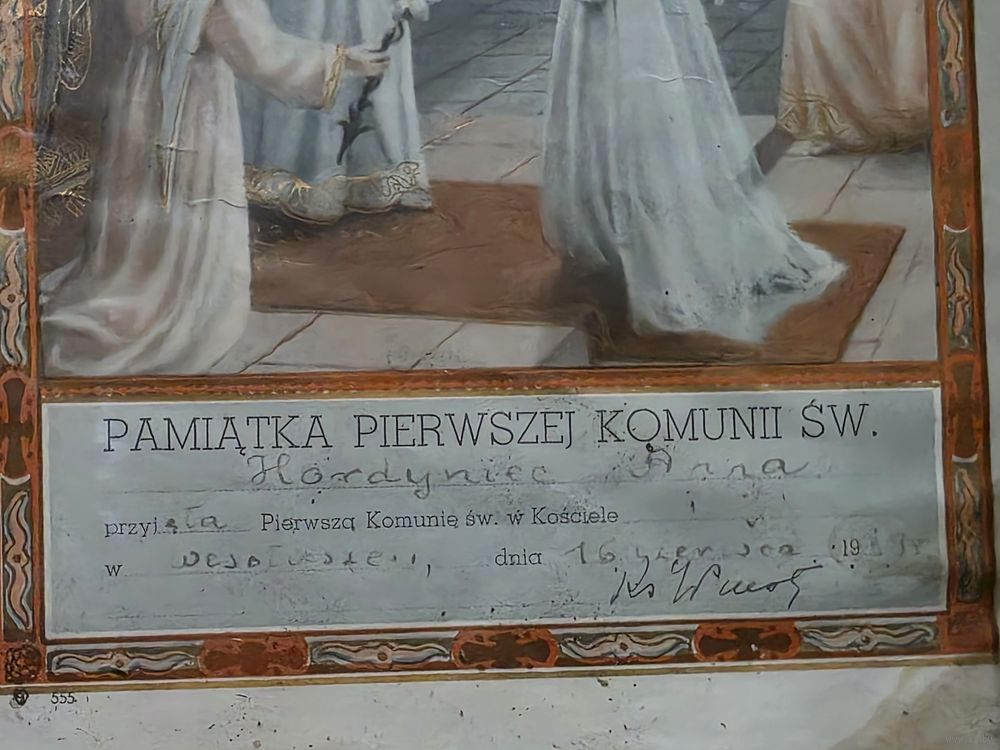 PAMIĄTKA PIERWSZEJ KOMUNII ŚW.
Hordyniec Anna
przyjęła Pierwszą Komunię św. w Kościele
w dnia 16 czerwca 19
Ks
555